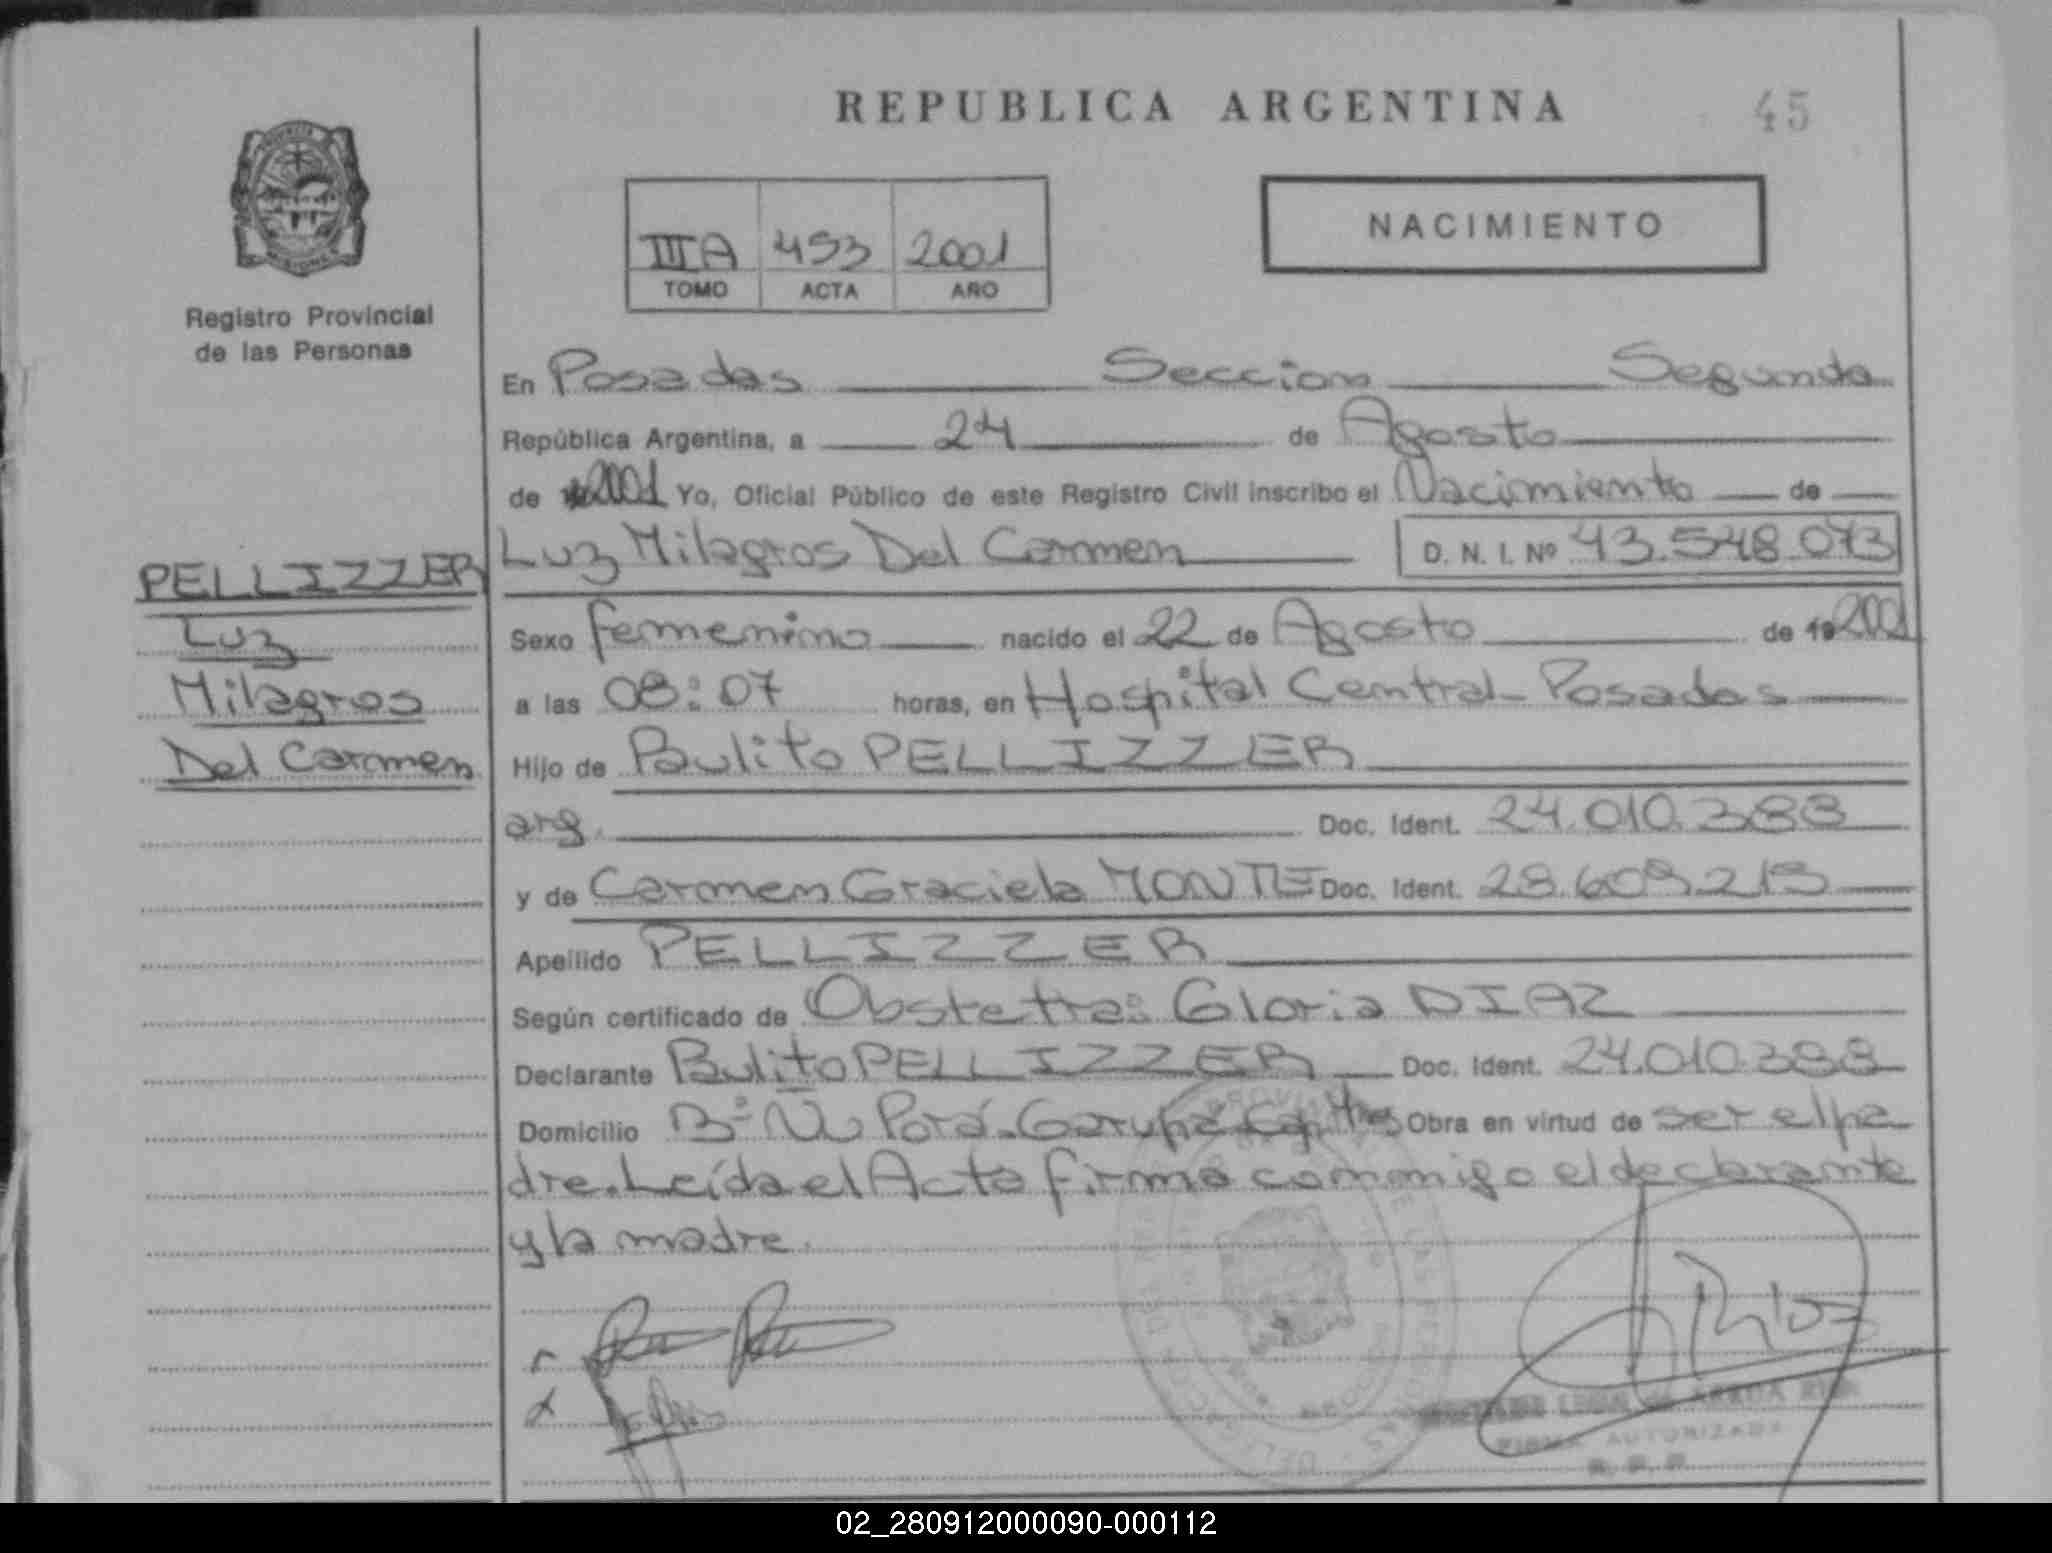 REPUBLICA ARGENTINA
45
NACIMIENTO
IIIA 493 2001
TOMO ACTA AÑO
Registro Provincial
de las Personas
En Posadas Seccion Segunda
República Argentina, a 24 de Agosto
de 2001 Yo, Oficial Público de este Registro Civil inscribo el Nacimiento de
PELLIZZER
Luz
Milagros
Del Carmen
Luz Milagros Del Carmen D. N. I. Nº 43.548.073
Sexo femenino nacido el 22 de Agosto de 19 2001
a las 08:07 horas, en Hospital Central-Posadas
Hijo de Paulito PELLIZZER
arg. Doc. Ident. 24.010.388
y de Carmen Graciela MONTIE Doc. Ident. 28.609.219
Apellido PELLIZZER
Según certificado de Obstetra: Gloria DIAZ
Declarante Paulito PELLIZZER Doc. Ident. 24.010.388
Domicilio Bº Ñu Porá-Garupá Obra en virtud de ser el pa
dre. Leída el Acta firma conmigo el declarante
y la madre.
FIRMA AUTORIZADA
02_280912000090-000112